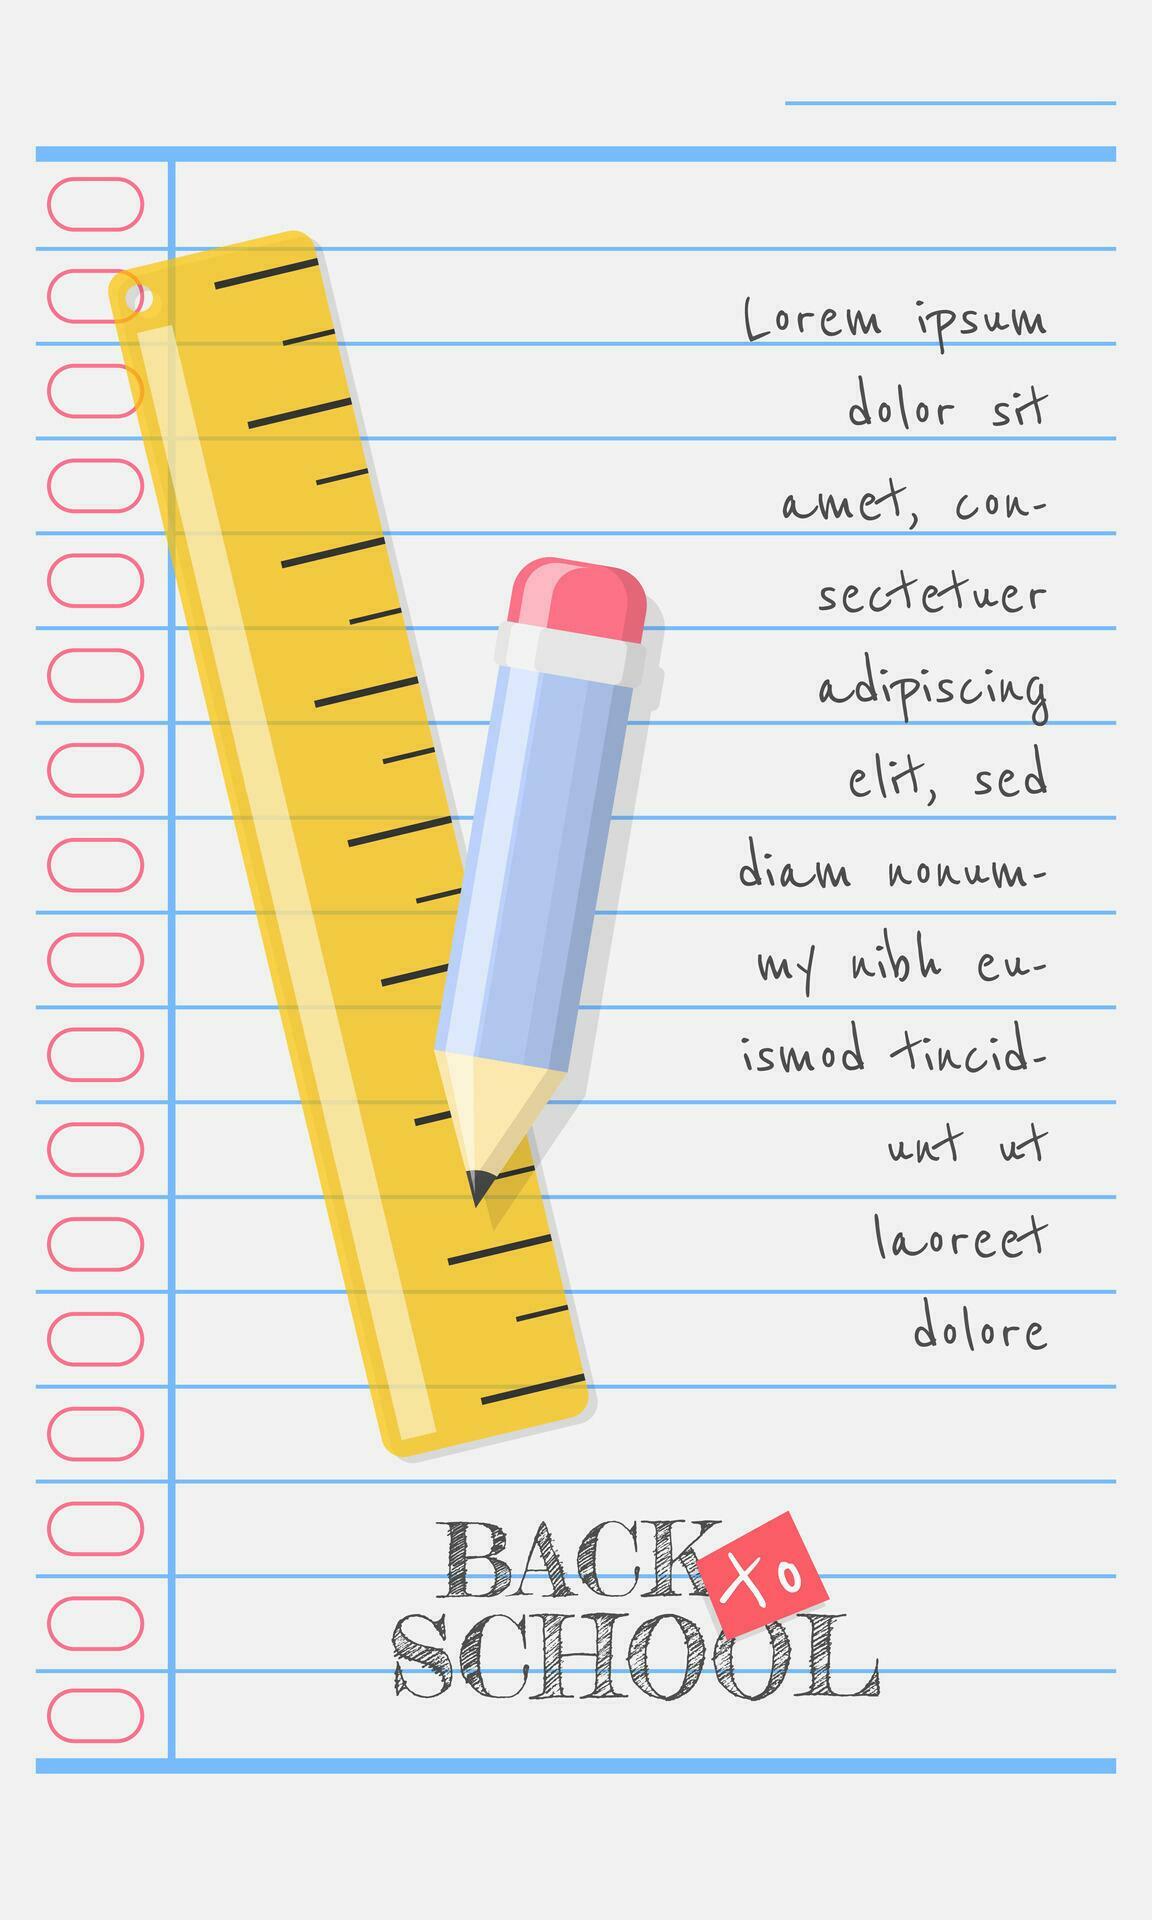 Lorem ipsum
dolor sit
amet, con-
sectetuer
adipiscing
elit, sed
diam nonum-
my nibh eu-
ismod tincid-
unt ut
laoreet
dolore
BACK to
SCHOOL